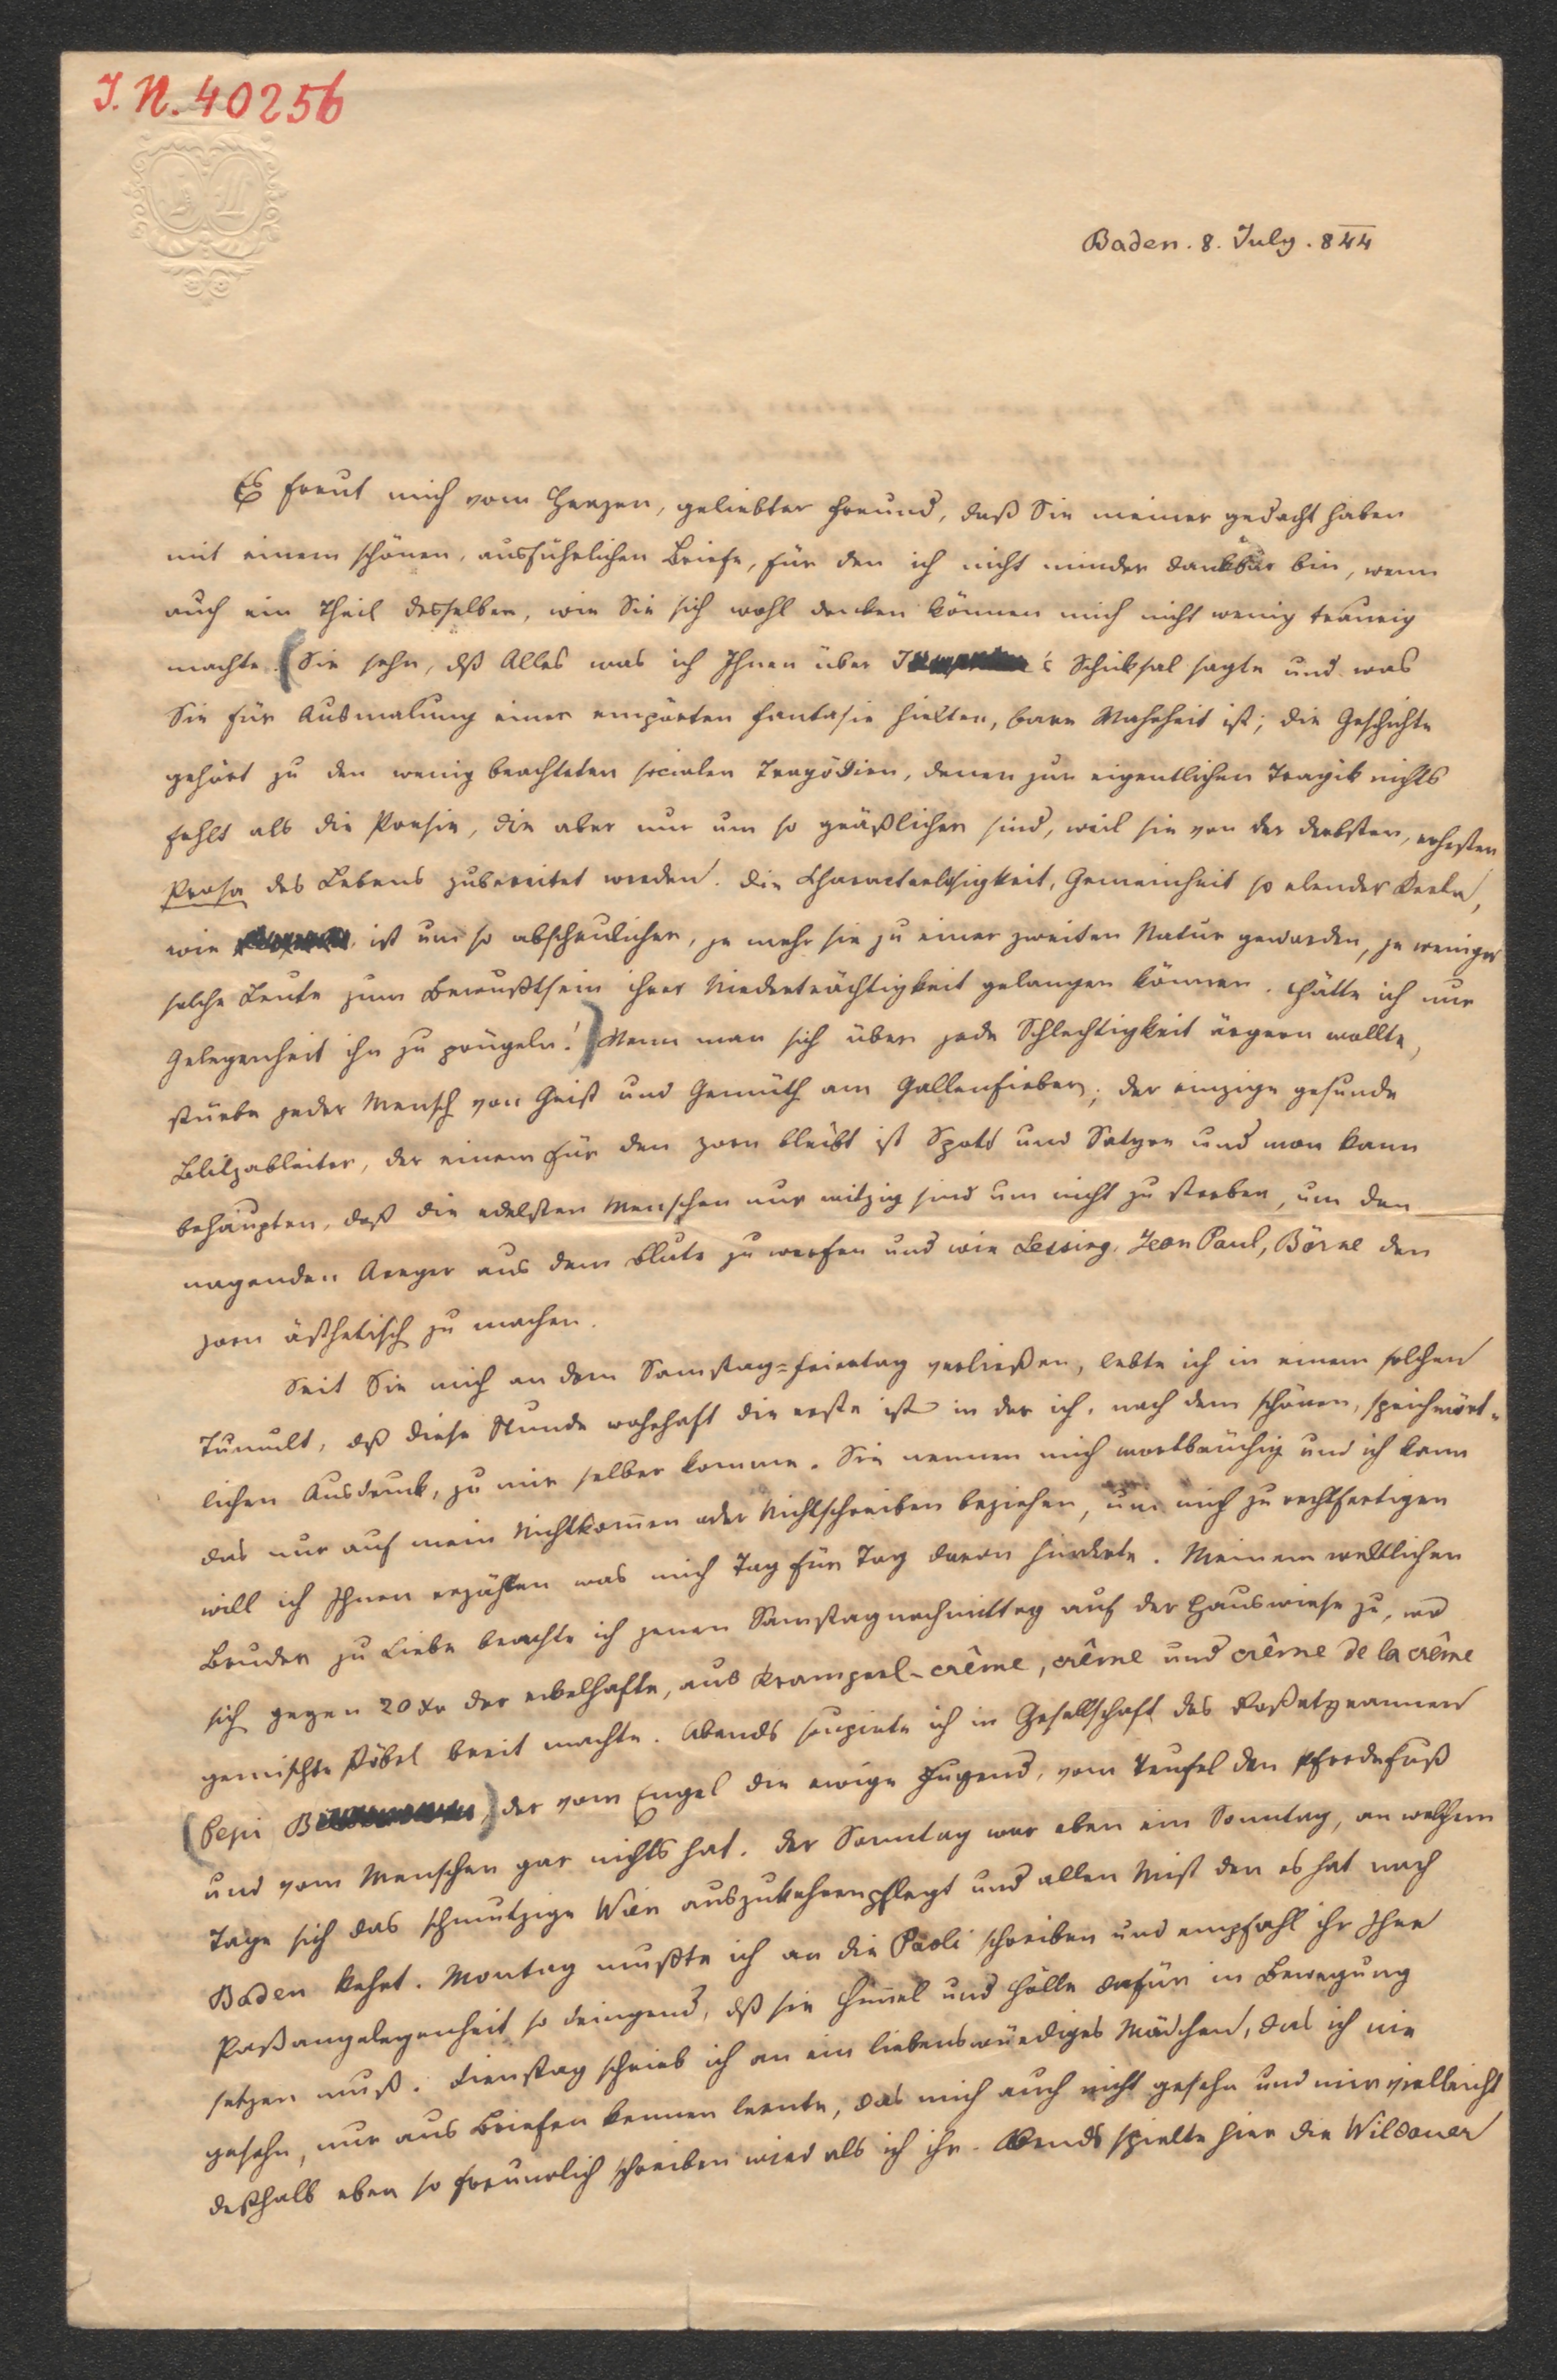 I. N. 40256
Baden. 8. July. 844
Es freut mich vom Herzen, geliebter Freund, daß Sie meiner gedacht haben
mit einem schönen, ausführlichen Briefe, für den ich nicht minder dankbar bin, wenn
auch ein Theil desselben, wie Sie sich wohl denken können mich nicht wenig traurig
machte. (Sie sehn, dß Alles was ich Ihnen über J 's Schicksal sagte und was
Sie für Ausmalung einer empörten Fantasie hielten, bare Wahrheit ist; die Geschichte
gehört zu den wenig beachteten socialen Tragödien, denen zur eigentlichen Tragik nichts
fehlt als die Poesie, die aber nur um so gräßlicher sind, weil sie von der derbsten, rohesten
Prosa des Lebens zubereitet werden. Die Characterlosigkeit, Gemeinheit so elender Kerle,
wie ist um so abscheulicher, je mehr sie zu einer zweiten Natur geworden, je weniger
solche Leute zum Bewußtsein ihrer Niederträchtigkeit gelangen können. Hätte ich nur
Gelegenheit ihn zu prügeln!) Wenn man sich über jede Schlechtigkeit ärgern wollte,
stürbe jeder Mensch von Geist und Gemüth am Gallenfieber; der einzige gesunde
Blitzableiter, der einem für den Zorn bleibt ist Spott und Satyre und man kann
behaupten, daß die edelsten Menschen nur witzig sind um nicht zu sterben, um den
nagenden Aerger aus dem Blute zu werfen und wie Lessing, Jean Paul, Börne den
Zorn ästhetisch zu machen.
Seit Sie mich an dem Samstag=Feiertag verließen, lebte ich in einem solchen
Tumult, dß diese Stunde wahrhaft die erste ist in der ich, nach dem schönen, sprichwört-
lichen Ausdruck, zu mir selber komme. Sie nennen mich wortbrüchig und ich kann
das nur auf mein Nichtkom̄en oder Nichtschreiben beziehen, um mich zu rechtfertigen
will ich Ihnen erzählen was mich Tag für Tag daran hinderte. Meinem weltlichen
Bruder zu Liebe brachte ich jenen Samstagnachmittag auf der Hauswiese zu, wo
sich gegen 20 Xr der ekelhafte, aus Kramperl-crême, crême und crême de la crême
gemischte Pöbel breit machte. Abends soupirte ich in Gesellschaft des Roßetyrannen
(Pepi B ) der vom Engel die ewige Jugend, vom Teufel den Pferdefuß
und vom Menschen gar nichts hat. Der Sonntag war eben ein Sonntag, an welchem
Tage sich das schmutzige Wien auszukehren pflegt und allen Mist den es hat nach
Baden kehrt. Montag mußte ich an die Paoli schreiben und empfahl ihr Ihre
Paßangelegenheit so dringend, dß sie Him̄el und Hölle dafür in Bewegung
setzen muß. Dienstag schrieb ich an ein liebenswürdiges Mädchen, das ich nie
gesehn, nur aus Briefen kennen lernte, das mich auch nicht gesehn und mir vielleicht
deßhalb eben so freundlich schreiben wird als ich ihr. Abends spielte hier die Wildauer